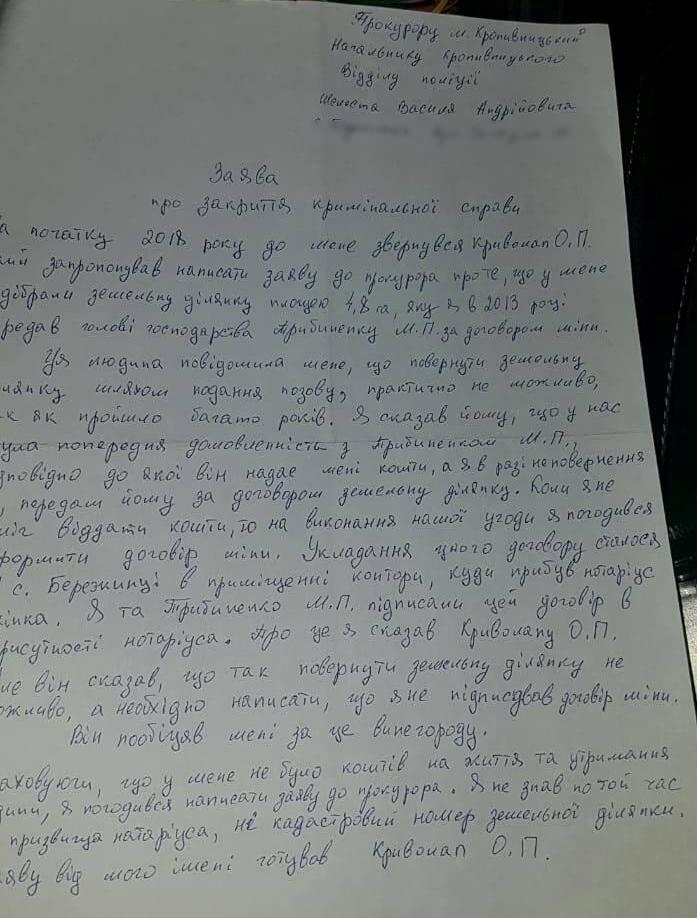 Прокурору м. Кропивницький
Начальнику Кропивницького
Відділу поліції
Шелеста Василя Андрійовича
Заява
про закриття кримінальної справи
а початку 2018 року до мене звернувся Криволап О.П.
ий запропонував написати заяву до прокурора проте, що у мене
дібрали земельну ділянку площею 4,8 га, яку я в 2013 році
редав голові господарства Трибиненку М.П. за договором міни.
Ця людина повідомила мене, що повернути земельну
лянку шляхом подання позову, практично не можливо,
к як пройшло багато років. Я сказав йому, що у нас
ула попередня домовленність з Трибиненком М.П.,
зповідно до якої він надає мені кошти, а я в разі неповернення
, передам йому за договором земельну ділянку. Коли я не
міг віддати кошти, то на виконання нашої угоди я погодився
формити договір міни. Укладання цього договору сталося
с. Бережинці в приміщенні контори, куди прибув нотаріус
інка. Я та Трибиненко М.П. підписали цей договір в
рисутності нотаріуса. Про це я сказав Криволапу О.П.
ле він сказав, що так повернути земельну ділянку не
ожливо, а необхідно написати, що я не підписував договір міни.
Він пообіцяв мені за це винегороду.
аховуючи, що у мене не було коштів на життя та утримання
дини, я погодився написати заяву до прокурора. Я не знав по той час
призвища натаріуса, ні кадастровий номер земельної ділянки.
яву від мого імені готував Криволап О.П.